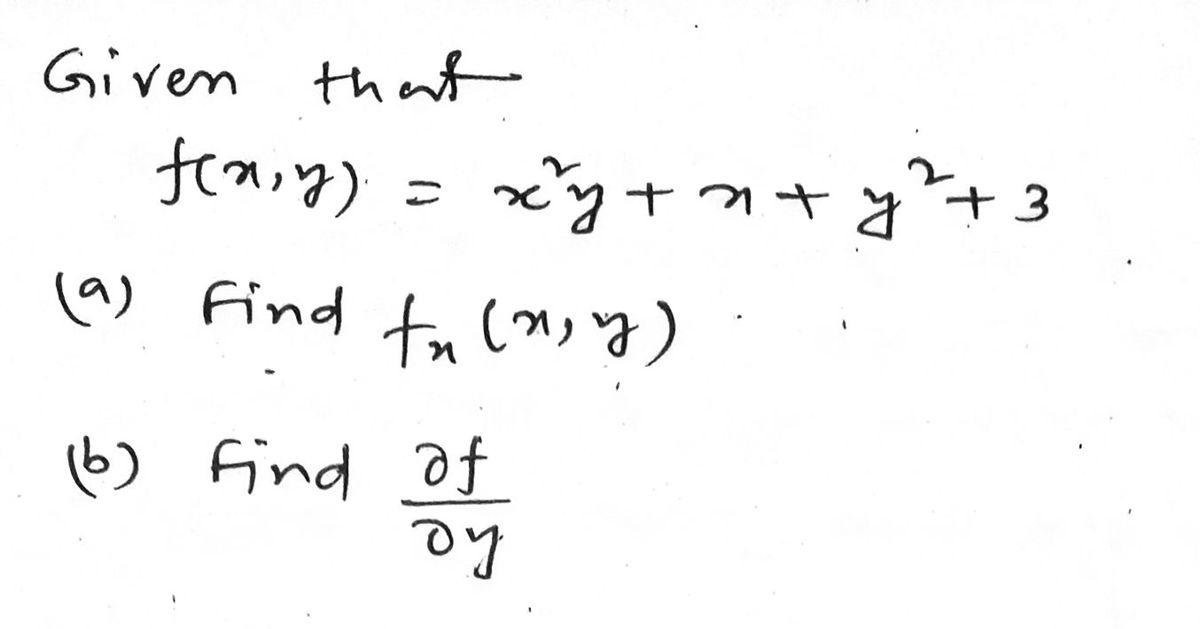 Given that
f(x,y) = x²y + x + y² + 3
(a) Find fₓ(x,y)
(b) Find ∂f/∂y